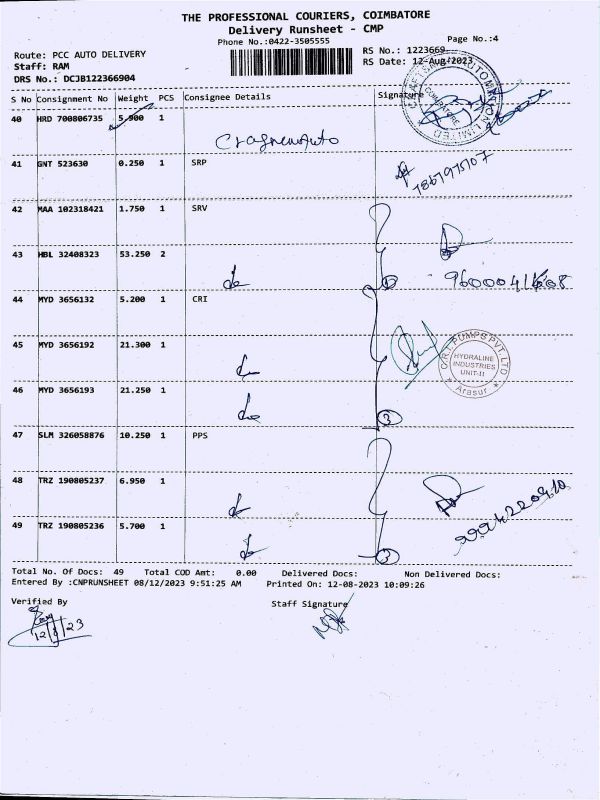 THE PROFESSIONAL COURIERS, COIMBATORE
Delivery Runsheet - CMP
Phone No.:0422-3505555
Page No.:4
Route: PCC AUTO DELIVERY
RS No.: 1223669
Staff: RAM
RS Date: 12-Aug-2023
DRS No.: DCJB122366904
S No Consignment No Weight PCS Consignee Details Signature
40 HRD 700806735 5.900 1
41 GNT 523630 0.250 1 SRP
42 MAA 102318421 1.750 1 SRV
43 HBL 32408323 53.250 2
44 MYD 3656132 5.200 1 CRI
45 MYD 3656192 21.300 1
C.R.I. PUMPS PVT. LTD
HYDRALINE
INDUSTRIES
UNIT-II
Arasur
46 MYD 3656193 21.250 1
3
47 SLM 326058876 10.250 1 PPS
48 TRZ 190805237 6.950 1
49 TRZ 190805236 5.700 1
Total No. Of Docs: 49 Total COD Amt: 0.00 Delivered Docs: Non Delivered Docs:
Entered By :CNPRUNSHEET 08/12/2023 9:51:25 AM Printed On: 12-08-2023 10:09:26
Verified By
Staff Signature
12/8/23